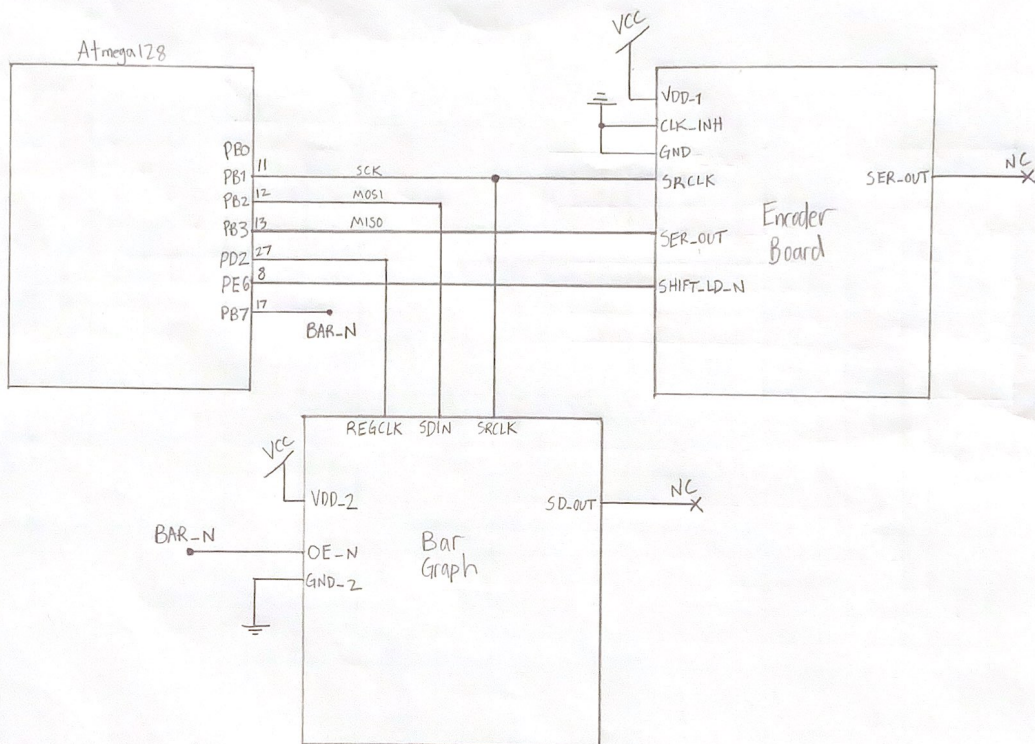 Atmega128
PB0
PB1
11
SCK
PB2
12
MOSI
PB3
13
MISO
PD2
27
PE6
8
PB7
17
BAR_N
VCC
VDD_1
CLK_INH
GND
SRCLK
SER_OUT
SHIFT_LD_N
Encoder
Board
SER_OUT
NC
REGCLK SDIN SRCLK
VCC
VDD_2
BAR_N
OE_N
GND_2
Bar
Graph
SD_OUT
NC